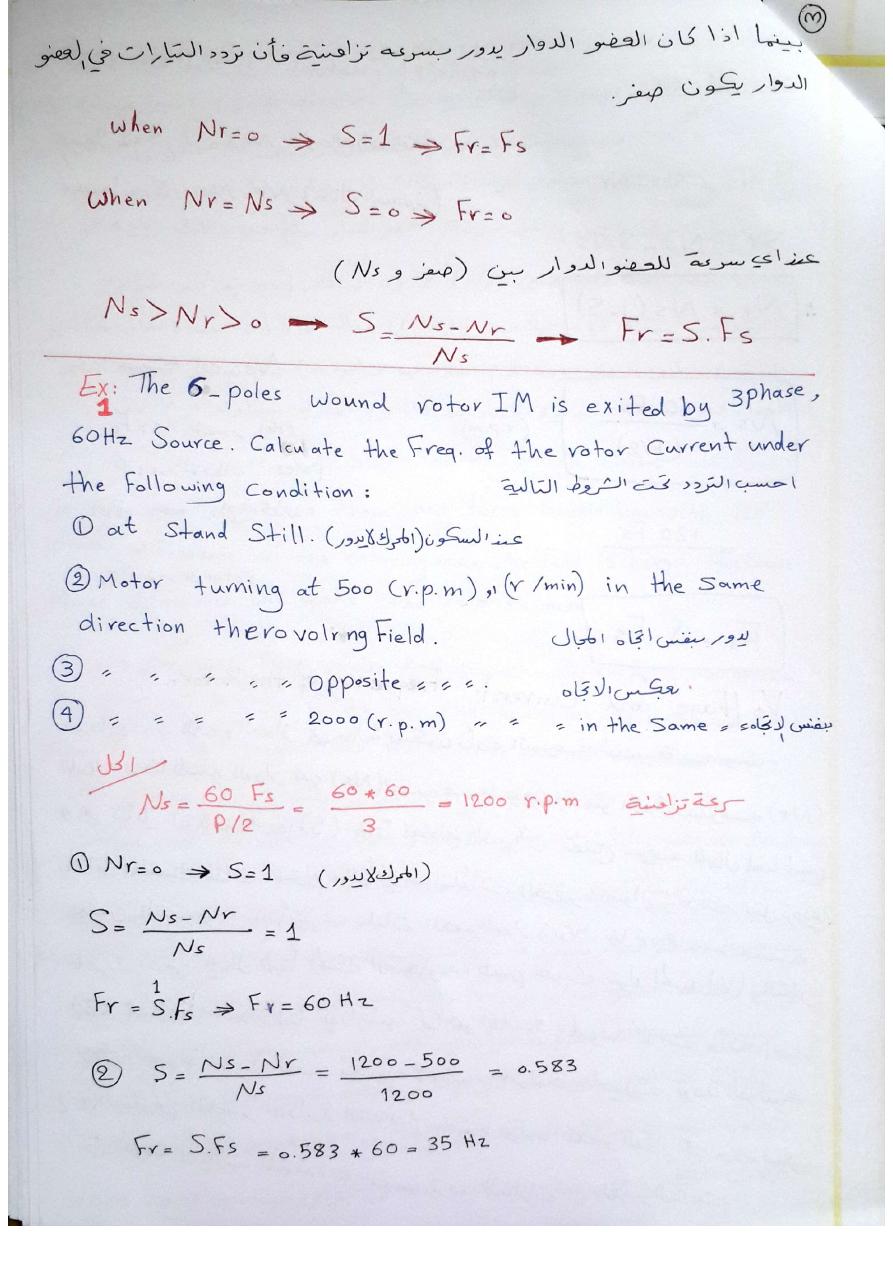 ٣
بينما اذا كان العضو الدوار يدور بسرعه تزامنية فأن تردد التيارات في العضو
الدوار يكون صفر.
when Nr=0 ⇒ S=1 ⇒ Fr=Fs
when Nr=Ns ⇒ S=0 ⇒ Fr=0
عند اي سرعة للعضو الدوار بين (صفر و Ns)
Ns>Nr>0 → S= Ns-Nr / Ns → Fr=S.Fs
Ex: 1 The 6-poles wound rotor IM is exited by 3phase,
60Hz Source. Calcuate the Freq. of the rotor Current under
the Following Condition: احسب التردد تحت الشروط التالية
① at Stand Still. (المحرك لايدور) عند السكون
② Motor turning at 500 (r.p.m) او (r/min) in the Same
direction the rovolring Field. يدور بنفس اتجاه المجال
③ = = = = = Opposite = = =. بعكس الاتجاه
④ = = = = = 2000 (r.p.m) = = = in the Same = بنفس الاتجاه
الحل
Ns = 60 Fs / P/2 = 60*60 / 3 = 1200 r.p.m سرعة تزامنية
① Nr=0 ⇒ S=1 (المحرك لايدور)
S= Ns-Nr / Ns = 1
Fr = S.Fs ⇒ Fr = 60 Hz
② S = Ns-Nr / Ns = 1200-500 / 1200 = 0.583
Fr = S.Fs = 0.583 * 60 = 35 Hz